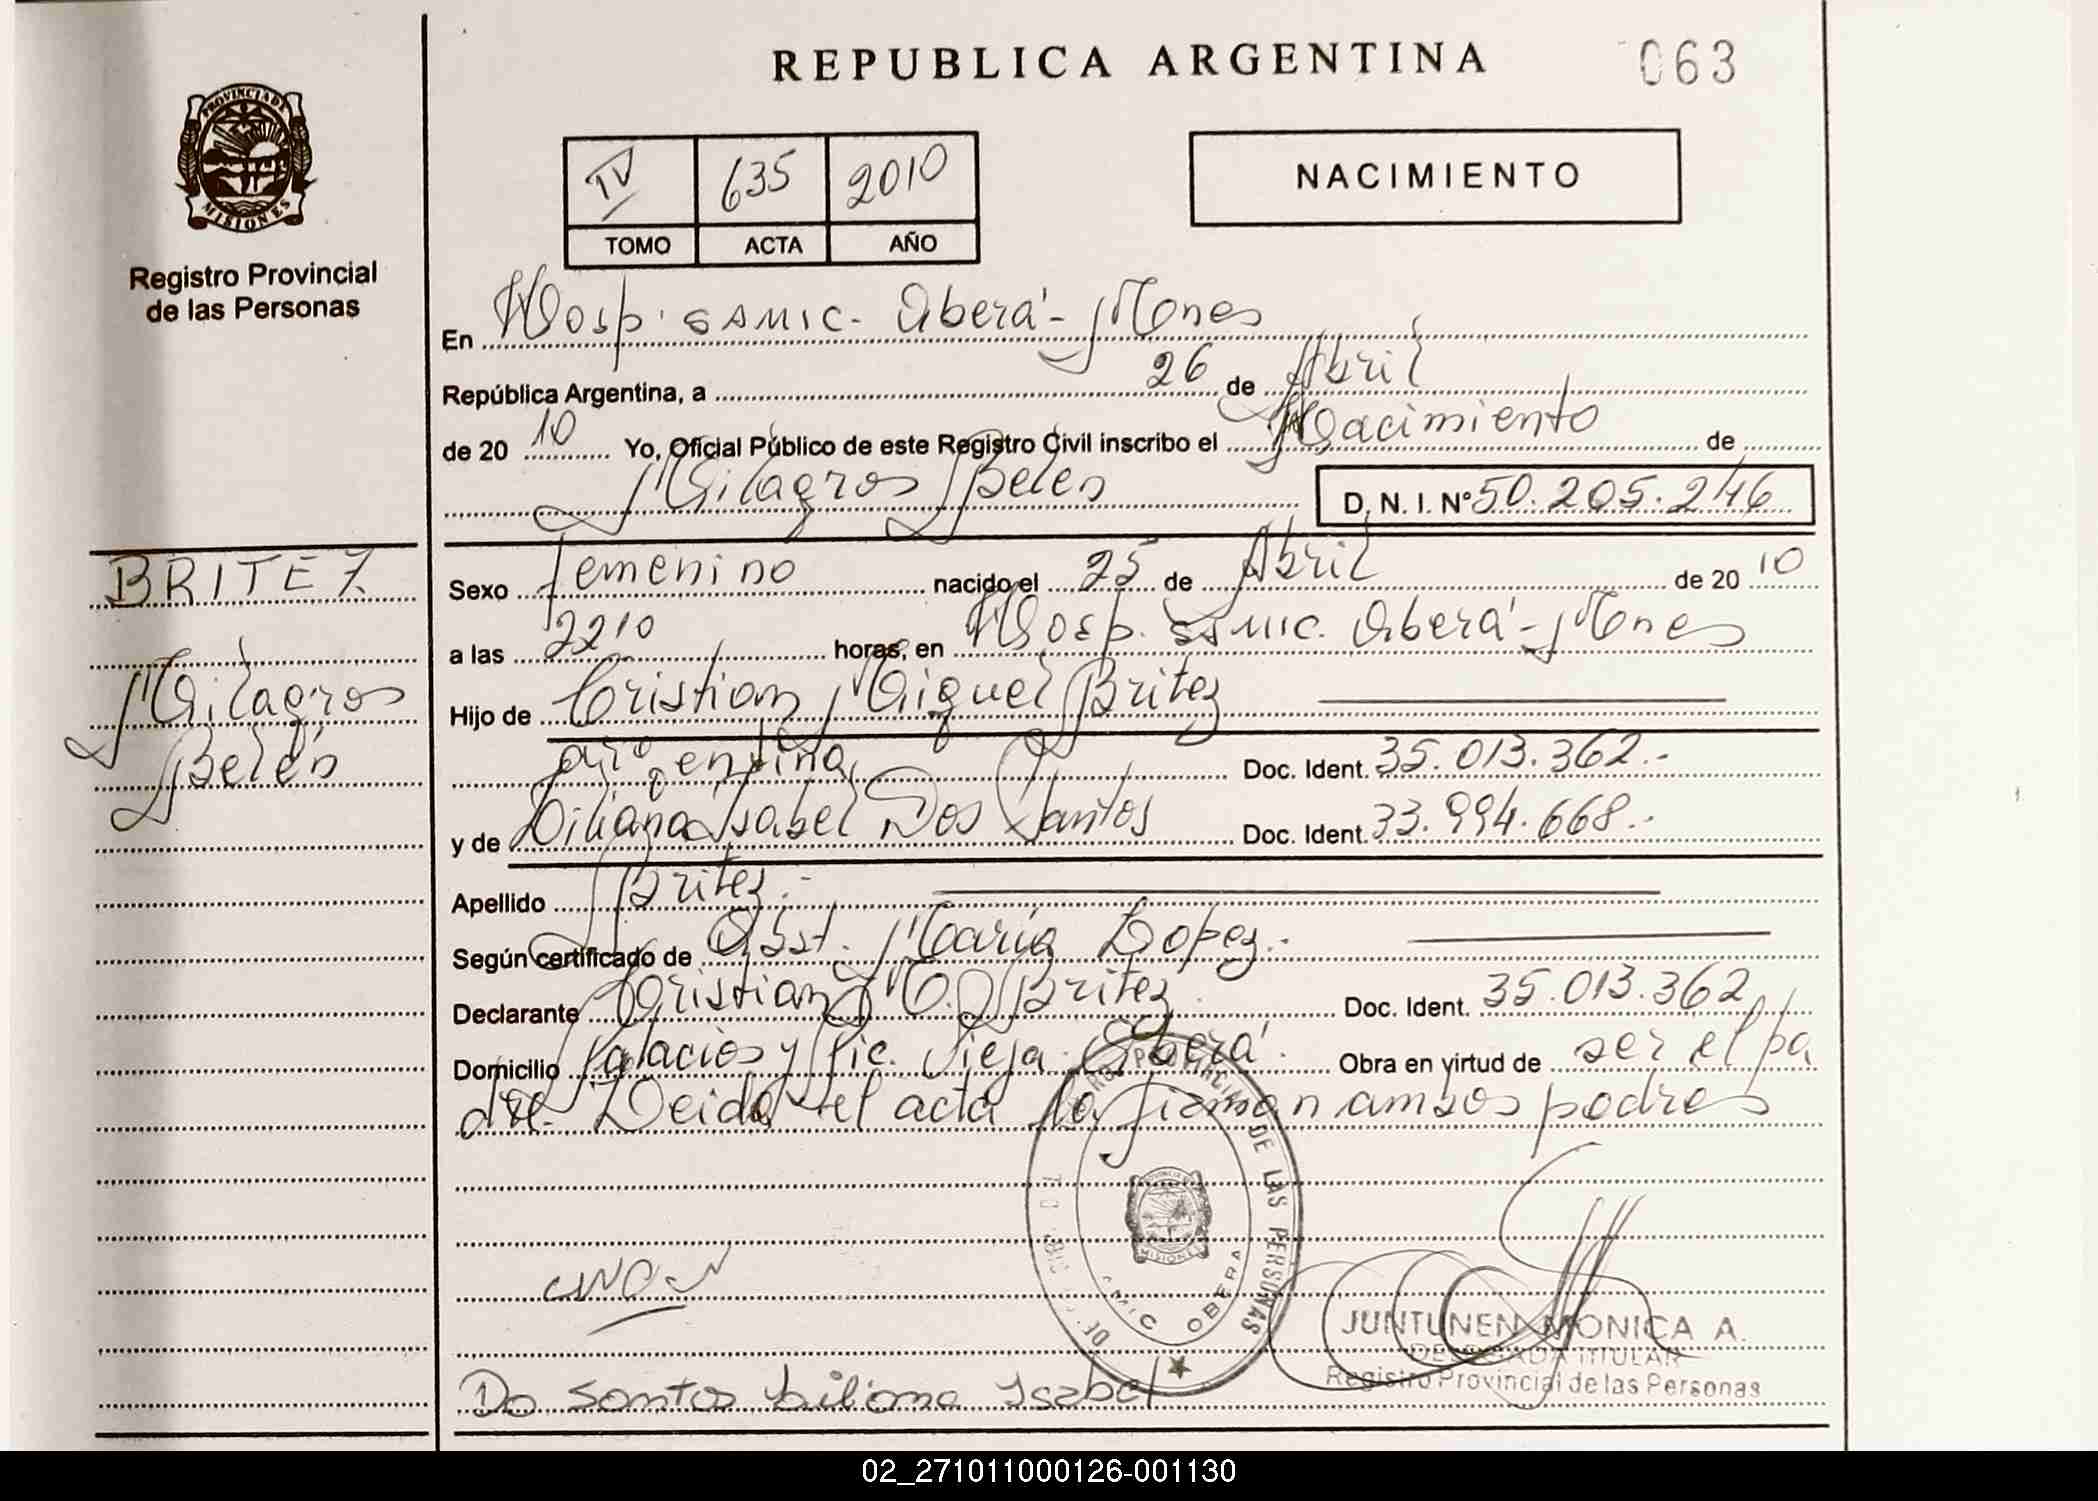 REPUBLICA ARGENTINA
063
PROVINCIA DE
MISIONES
Registro Provincial
de las Personas
IV 635 2010
TOMO ACTA AÑO
NACIMIENTO
En Hosp. SAMIC. Oberá - Mones
República Argentina, a 26 de Abril
de 20 10 Yo, Oficial Público de este Registro Civil inscribo el Nacimiento de
Milagros Belen
D. N. I. Nº 50.205.246
BRITEZ
Milagros
Belén
Sexo femenino nacido el 25 de Abril de 20 10
a las 2210 horas, en Hosp. SAMIC. Oberá - Mones
Hijo de Cristian Miguel Britez
argentina Doc. Ident. 35.013.362.-
y de Liliana Isabel Dos Santos Doc. Ident. 33.994.668.-
Apellido Britez.-
Según certificado de Obst. María Lopez.-
Declarante Cristian M. Britez Doc. Ident. 35.013.362
Domicilio Palacios y Pic. Vieja. Oberá. Obra en virtud de ser el pa
dre. Leida el acta la firman ambos padres
PROVINCIAL DE LAS PERSONAS
MISIONES
SAMIC OBERA
JUNTUNEN MONICA A.
DELEGADA TITULAR
Registro Provincial de las Personas
Do Santos Liliana Isabel
02_271011000126-001130